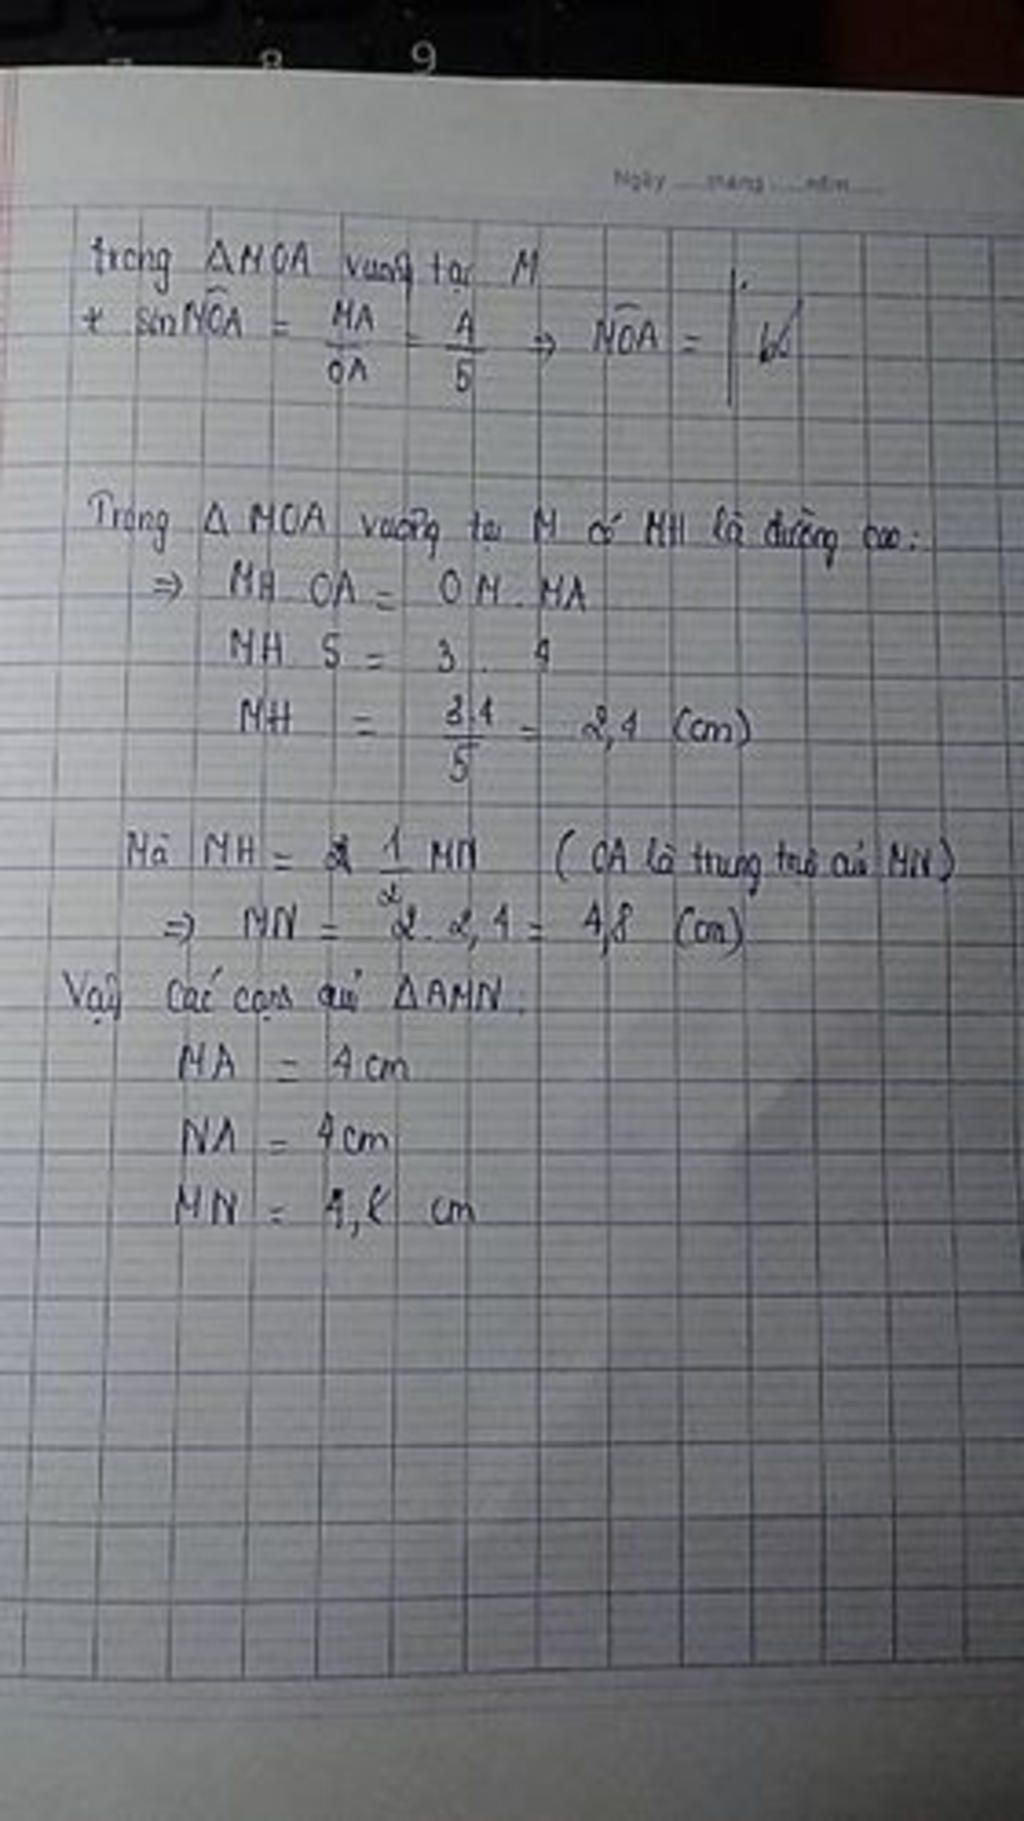 9
Ngày ......tháng ......năm......
trong ΔMOA vuông tại M
+ sin MOA = MA/OA = 4/5 => MOA =
Trong Δ MOA vuông tại M có MH là đường cao:
=> MH OA = OM . MA
MH 5 = 3 . 4
MH = 3.4/5 = 2,4 (cm)
Mà MH = 1/2 MN (OA là trung trực của MN)
=> MN = 2. 2,4 = 4,8 (cm)
Vậy các cạnh của ΔAMN:
MA = 4 cm
NA = 4 cm
MN = 4,8 cm